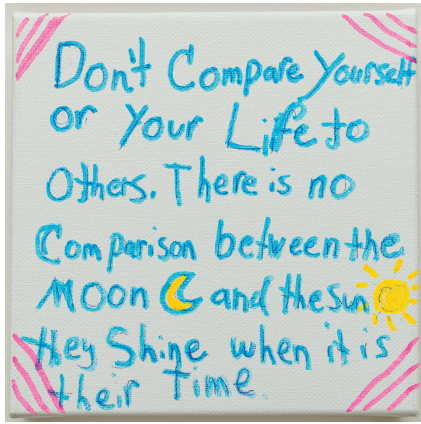 Don't Compare Yourself
or Your Life to
Others. There is no
Comparison between the
Moon and the Sun
they Shine when it is
their Time.